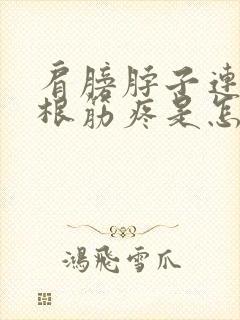 肩膀脖子連
根筋疼是怎
鴻飛雪爪